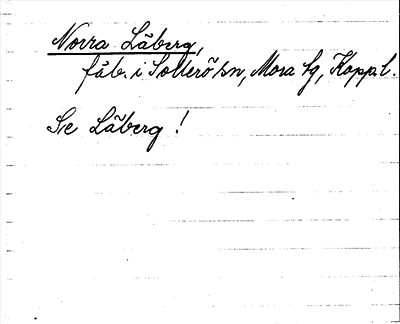 Norra Läberg,
fäb. i Sollerö sn, Mora tg, Koppl.
Se Läberg!